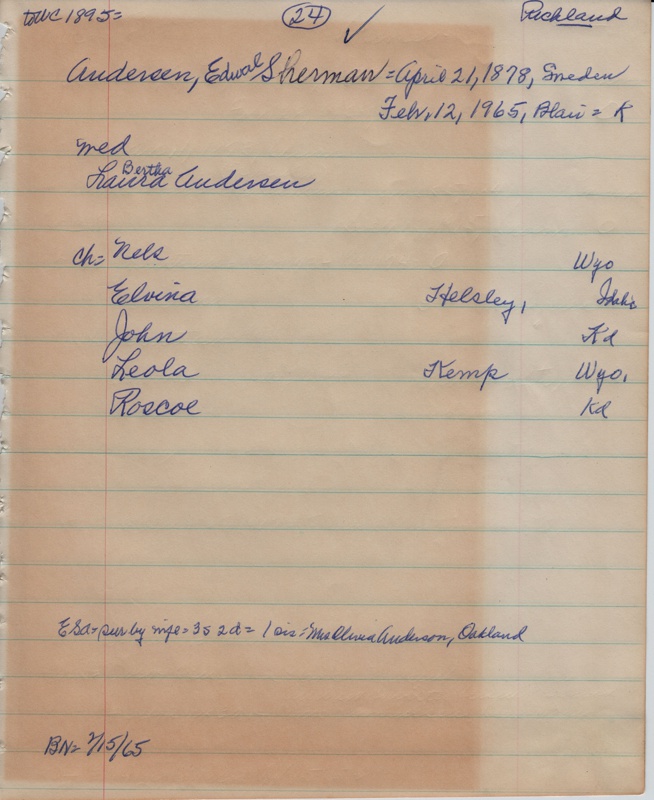 to WC 1895= 24 ✓ Richland
Andersen, Edwal Sherman = April 21, 1878, Sweden
Feb. 12, 1965, Blair = K
med
Bertha
Laura Andersen
ch = Nels Wyo
Elvina Helsley, Idaho
John Kd
Leola Kemp Wyo.
Roscoe Kd
ESA = sur by wife = 3s 2d = 1 sis = Mrs Anderson, Oakland
BN = 2/15/65